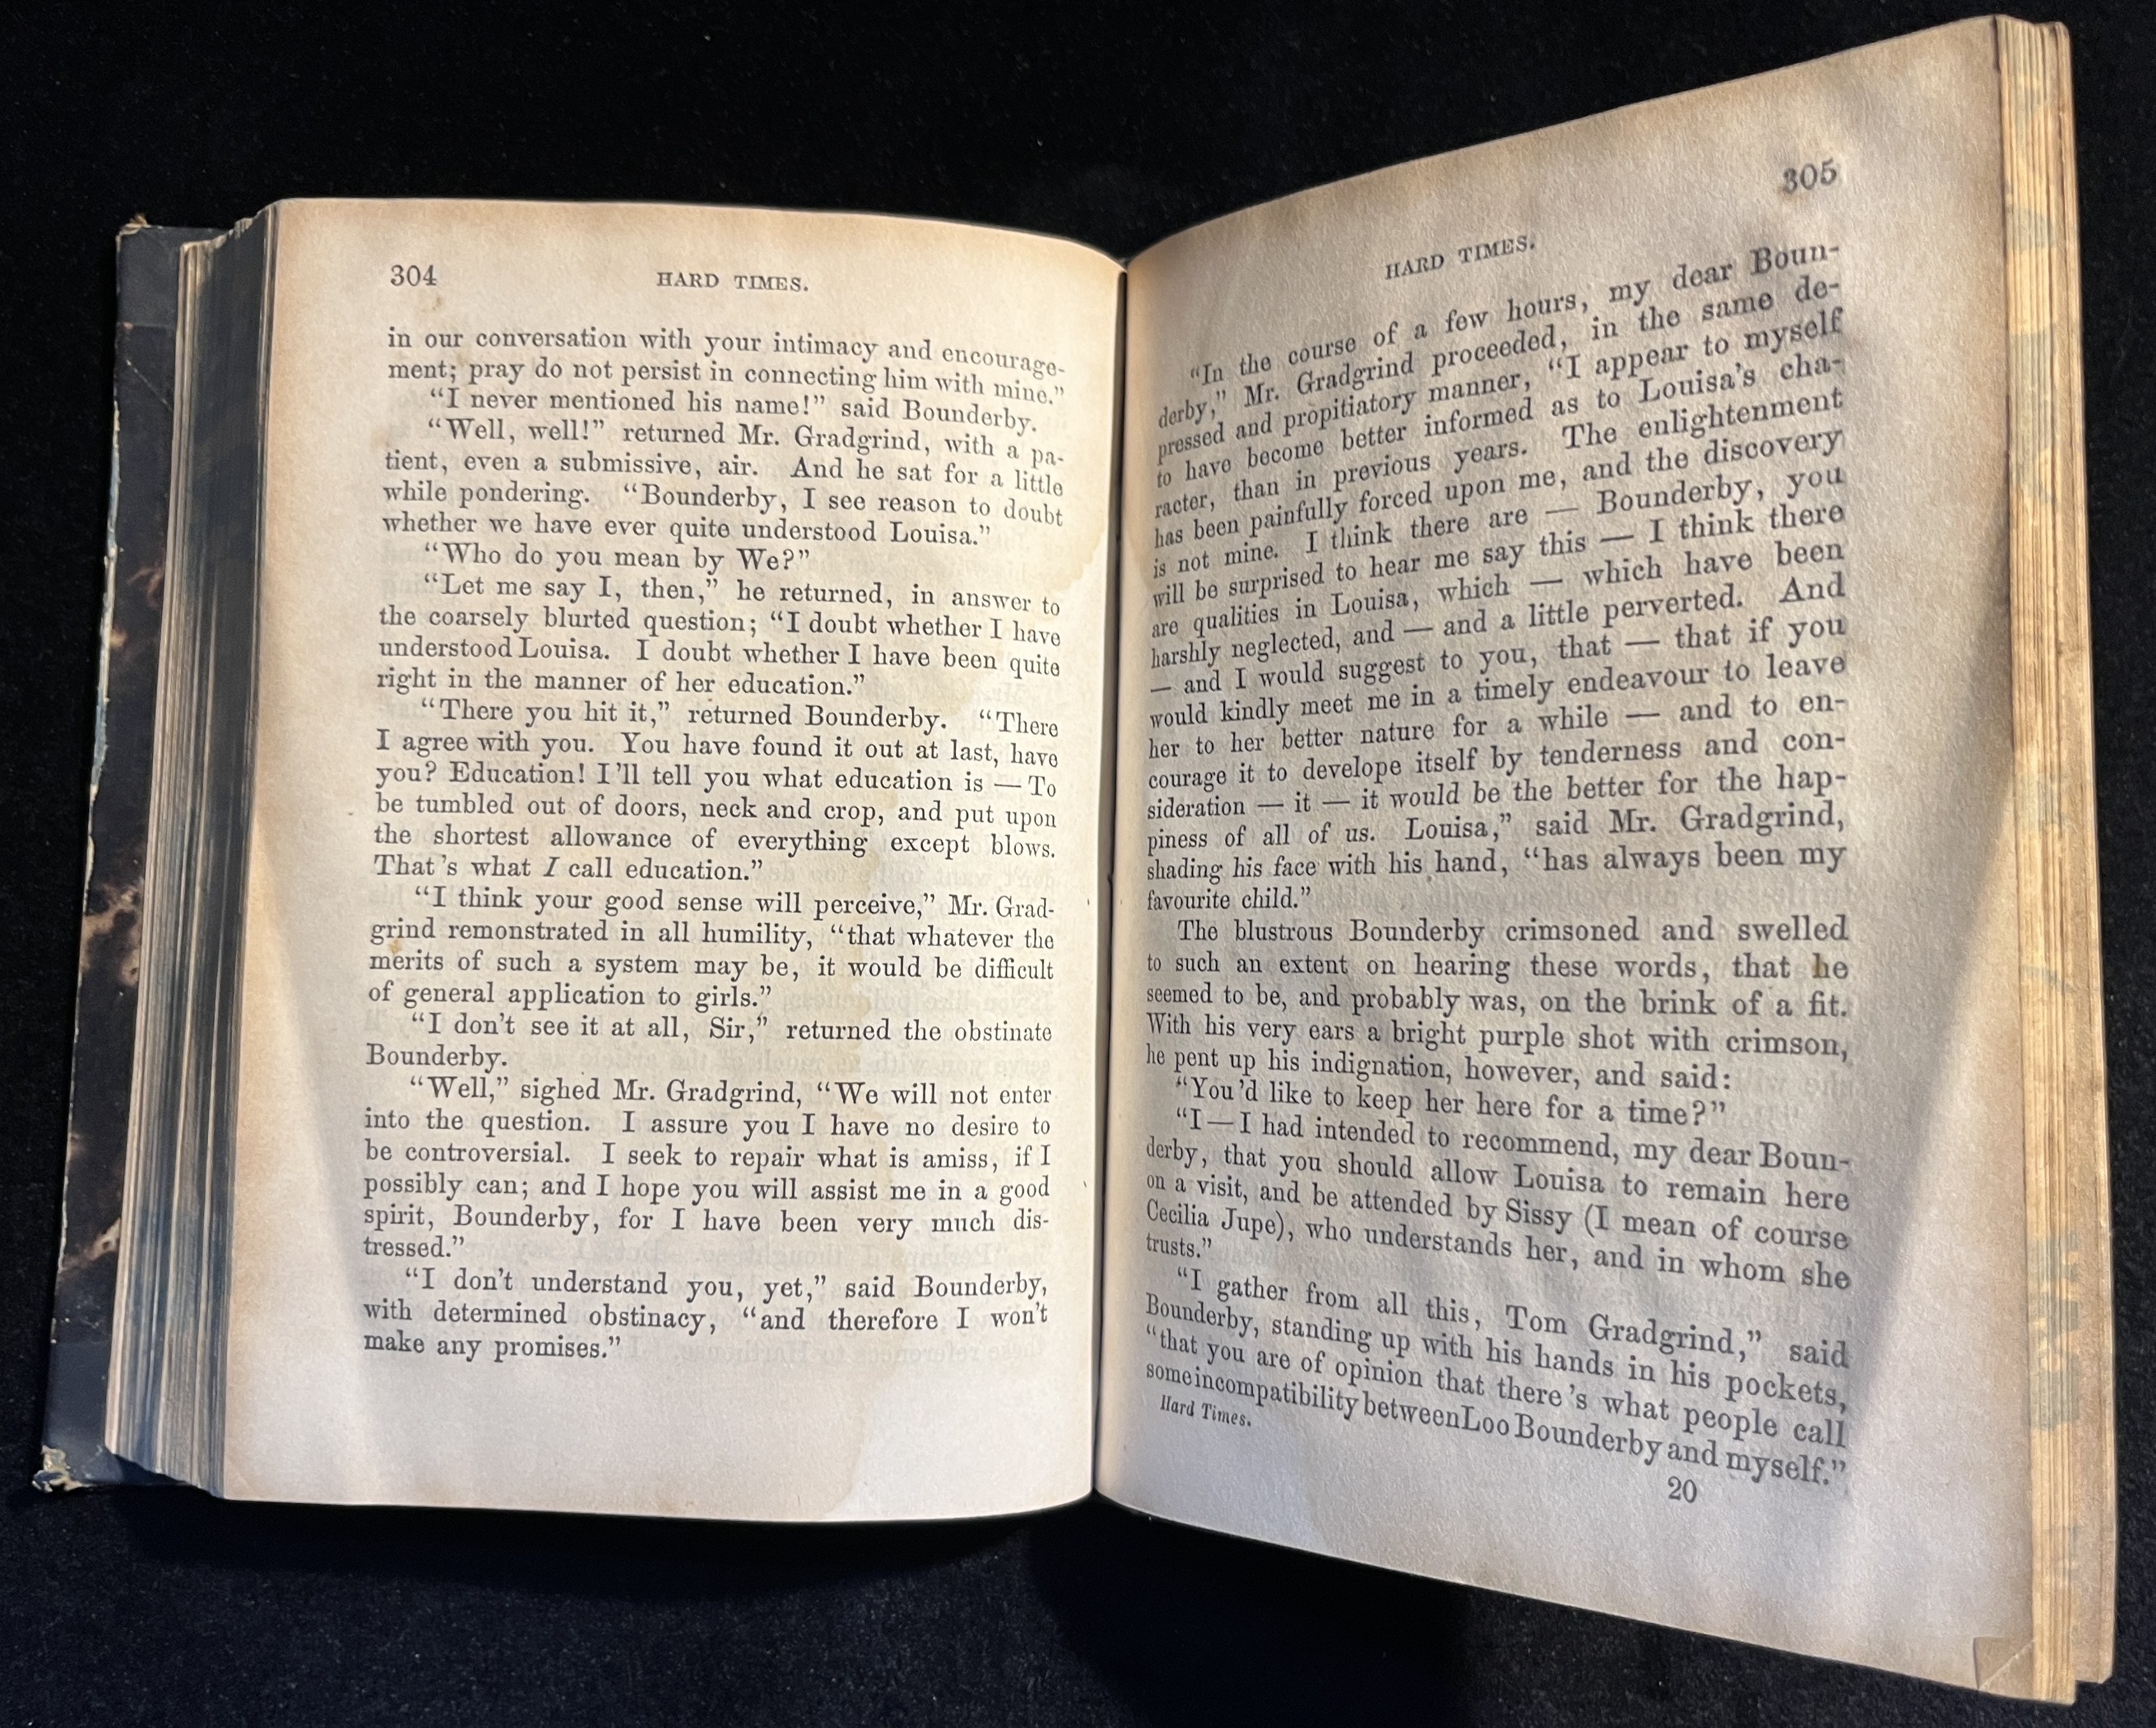 304 HARD TIMES.
in our conversation with your intimacy and encourage-
ment; pray do not persist in connecting him with mine.”
“I never mentioned his name!” said Bounderby.
“Well, well!” returned Mr. Gradgrind, with a pa-
tient, even a submissive, air. And he sat for a little
while pondering. “Bounderby, I see reason to doubt
whether we have ever quite understood Louisa.”
“Who do you mean by We?”
“Let me say I, then,” he returned, in answer to
the coarsely blurted question; “I doubt whether I have
understood Louisa. I doubt whether I have been quite
right in the manner of her education.”
“There you hit it,” returned Bounderby. “There
I agree with you. You have found it out at last, have
you? Education! I’ll tell you what education is — To
be tumbled out of doors, neck and crop, and put upon
the shortest allowance of everything except blows.
That’s what I call education.”
“I think your good sense will perceive,” Mr. Grad-
grind remonstrated in all humility, “that whatever the
merits of such a system may be, it would be difficult
of general application to girls.”
“I don’t see it at all, Sir,” returned the obstinate
Bounderby.
“Well,” sighed Mr. Gradgrind, “We will not enter
into the question. I assure you I have no desire to
be controversial. I seek to repair what is amiss, if I
possibly can; and I hope you will assist me in a good
spirit, Bounderby, for I have been very much dis-
tressed.”
“I don’t understand you, yet,” said Bounderby,
with determined obstinacy, “and therefore I won’t
make any promises.”
HARD TIMES. 305
“In the course of a few hours, my dear Boun-
derby,” Mr. Gradgrind proceeded, in the same de-
pressed and propitiatory manner, “I appear to myself
to have become better informed as to Louisa’s cha-
racter, than in previous years. The enlightenment
has been painfully forced upon me, and the discovery
is not mine. I think there are — Bounderby, you
will be surprised to hear me say this — I think there
are qualities in Louisa, which — which have been
harshly neglected, and — and a little perverted. And
— and I would suggest to you, that — that if you
would kindly meet me in a timely endeavour to leave
her to her better nature for a while — and to en-
courage it to develope itself by tenderness and con-
sideration — it — it would be the better for the hap-
piness of all of us. Louisa,” said Mr. Gradgrind,
shading his face with his hand, “has always been my
favourite child.”
The blustrous Bounderby crimsoned and swelled
to such an extent on hearing these words, that he
seemed to be, and probably was, on the brink of a fit.
With his very ears a bright purple shot with crimson,
he pent up his indignation, however, and said:
“You’d like to keep her here for a time?”
“I—I had intended to recommend, my dear Boun-
derby, that you should allow Louisa to remain here
on a visit, and be attended by Sissy (I mean of course
Cecilia Jupe), who understands her, and in whom she
trusts.”
“I gather from all this, Tom Gradgrind,” said
Bounderby, standing up with his hands in his pockets,
“that you are of opinion that there’s what people call
some incompatibility between Loo Bounderby and myself.”
Hard Times. 20